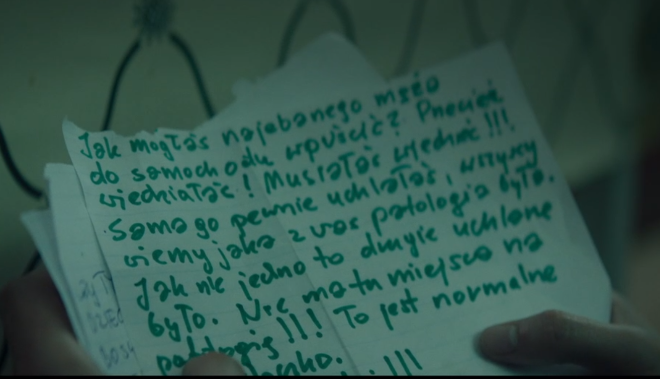 Jak mogłaś najebanego męża
do samochodu wpuścić? Przecież
wiedziałaś! Musiałaś wiedzieć!!!
Sama go pewnie uchlałaś, wszyscy
wiemy jaka z was patologia była.
Jak nie jedno to drugie uchlane
było. Nie ma tu miejsca na
patologię!!! To jest normalne
!!!